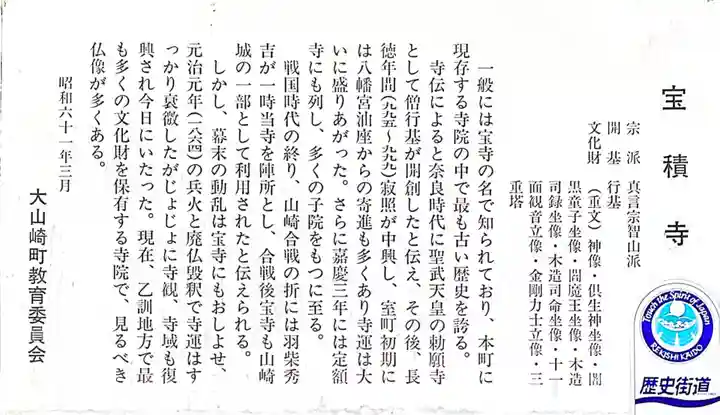 宝積寺
宗派 真言宗智山派
開基 行基
文化財 (重文) 神像・倶生神坐像・闇
黒童子坐像・閻魔王坐像・木造
司録坐像・木造司命坐像・十一
面観音立像・金剛力士立像・三
重塔
一般には宝寺の名で知られており、本町に
現存する寺院の中で最も古い歴史を誇る。
寺伝によると奈良時代に聖武天皇の勅願寺
として僧行基が開創したと伝え、その後、長
徳年間(九九五〜九九九)寂照が中興し、室町初期に
は八幡宮油座からの寄進も多くあり寺運は大
いに盛りあがった。さらに嘉慶三年には定額
寺にも列し、多くの子院をもつに至る。
戦国時代の終り、山崎合戦の折には羽柴秀
吉が一時当寺を陣所とし、合戦後宝寺も山崎
城の一部として利用されたと伝えられる。
しかし、幕末の動乱は宝寺にもおしよせ、
元治元年(一八六四)の兵火と廃仏毀釈で寺運はす
っかり衰微したがじょじょに寺観、寺域も復
興され今日にいたった。現在、乙訓地方で最
も多くの文化財を保有する寺院で、見るべき
仏像が多くある。
昭和六十一年三月
大山崎町教育委員会
Touch the Spirit of Japan
REKISHI KAIDO
歴史街道